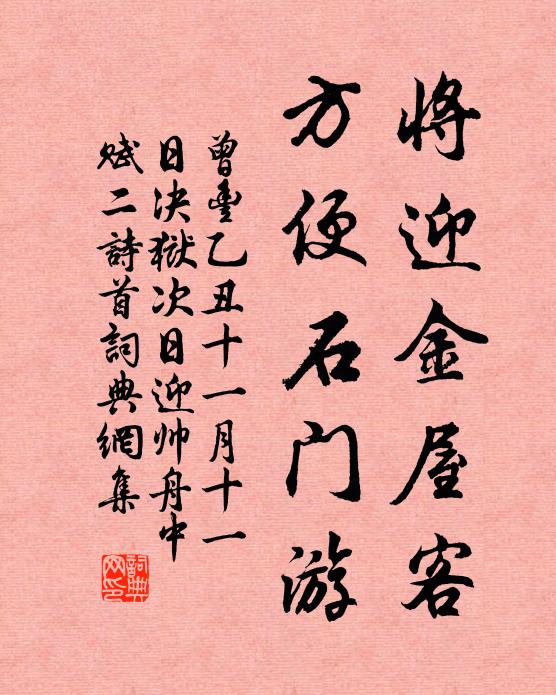 将迎金屋客
方便石门游
曾豊乙丑十一月十一
日决獄次日迎帅舟中
赋二詩首詞典網集
詞典网印